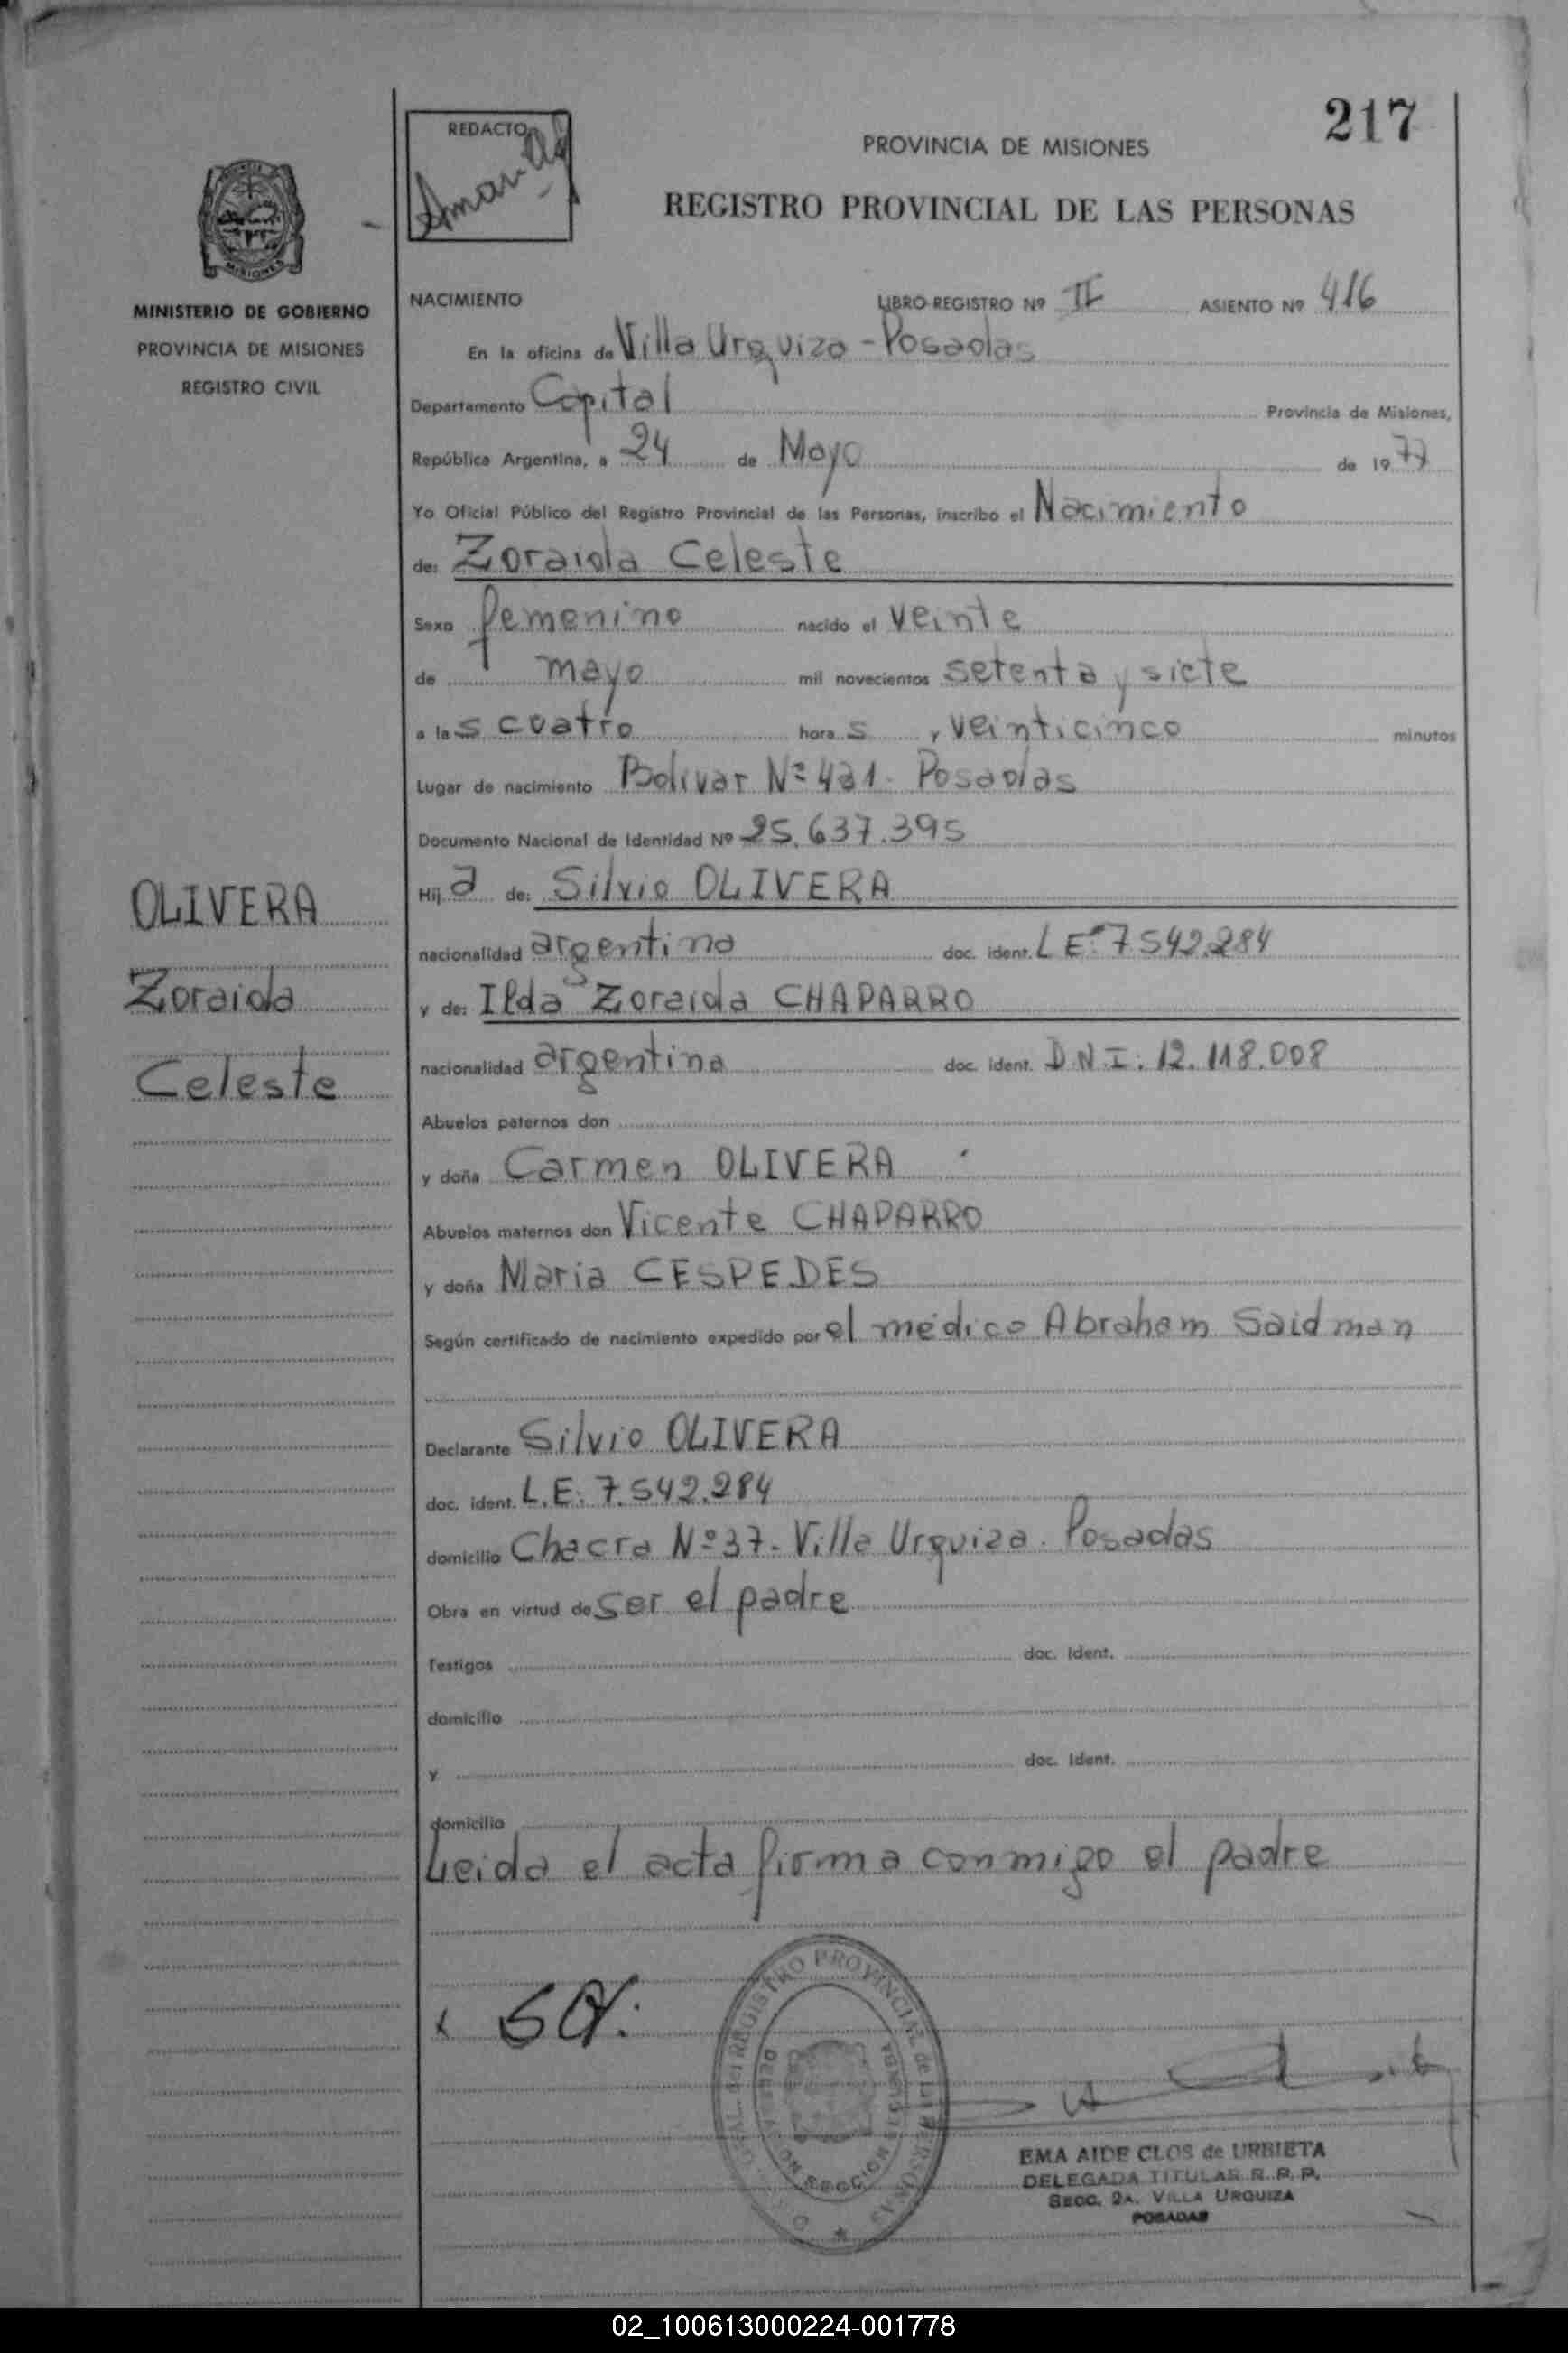 217
REDACTO
PROVINCIA DE MISIONES
REGISTRO PROVINCIAL DE LAS PERSONAS
MISIONES
MINISTERIO DE GOBIERNO
PROVINCIA DE MISIONES
REGISTRO CIVIL
NACIMIENTO LIBRO-REGISTRO Nº II ASIENTO Nº 416
En la oficina de Villa Urquiza - Posadas
Departamento Capital Provincia de Misiones,
República Argentina, a 24 de Mayo de 1977
Yo Oficial Público del Registro Provincial de las Personas, inscribo el Nacimiento
de: Zoraida Celeste
Sexo femenino nacido el veinte
de mayo mil novecientos setenta y siete
a las cuatro horas y veinticinco minutos
Lugar de nacimiento Bolivar Nº 431 - Posadas
Documento Nacional de Identidad Nº 25.637.395
Hija de: Silvio OLIVERA
nacionalidad argentina doc. ident. L E: 7.542.284
y de: Ilda Zoraida CHAPARRO
nacionalidad argentina doc. ident. D.N.I: 12.118.008
Abuelos paternos don
y doña Carmen OLIVERA
Abuelos maternos don Vicente CHAPARRO
y doña Maria CESPEDES
Según certificado de nacimiento expedido por el médico Abraham Saidman
Declarante Silvio OLIVERA
doc. ident. L.E: 7.542.284
domicilio Chacra Nº 37 - Villa Urquiza . Posadas
Obra en virtud de ser el padre
Testigos doc. Ident.
domicilio
y doc. Ident.
domicilio
Leida el acta firma conmigo el padre
OLIVERA
Zoraida
Celeste
REGISTRO PROVINCIAL de las PERSONAS
SECCION
EMA AIDE CLOS de URBIETA
DELEGADA TITULAR R. P. P.
SECC. 2A. VILLA URQUIZA
POSADAS
02_100613000224-001778